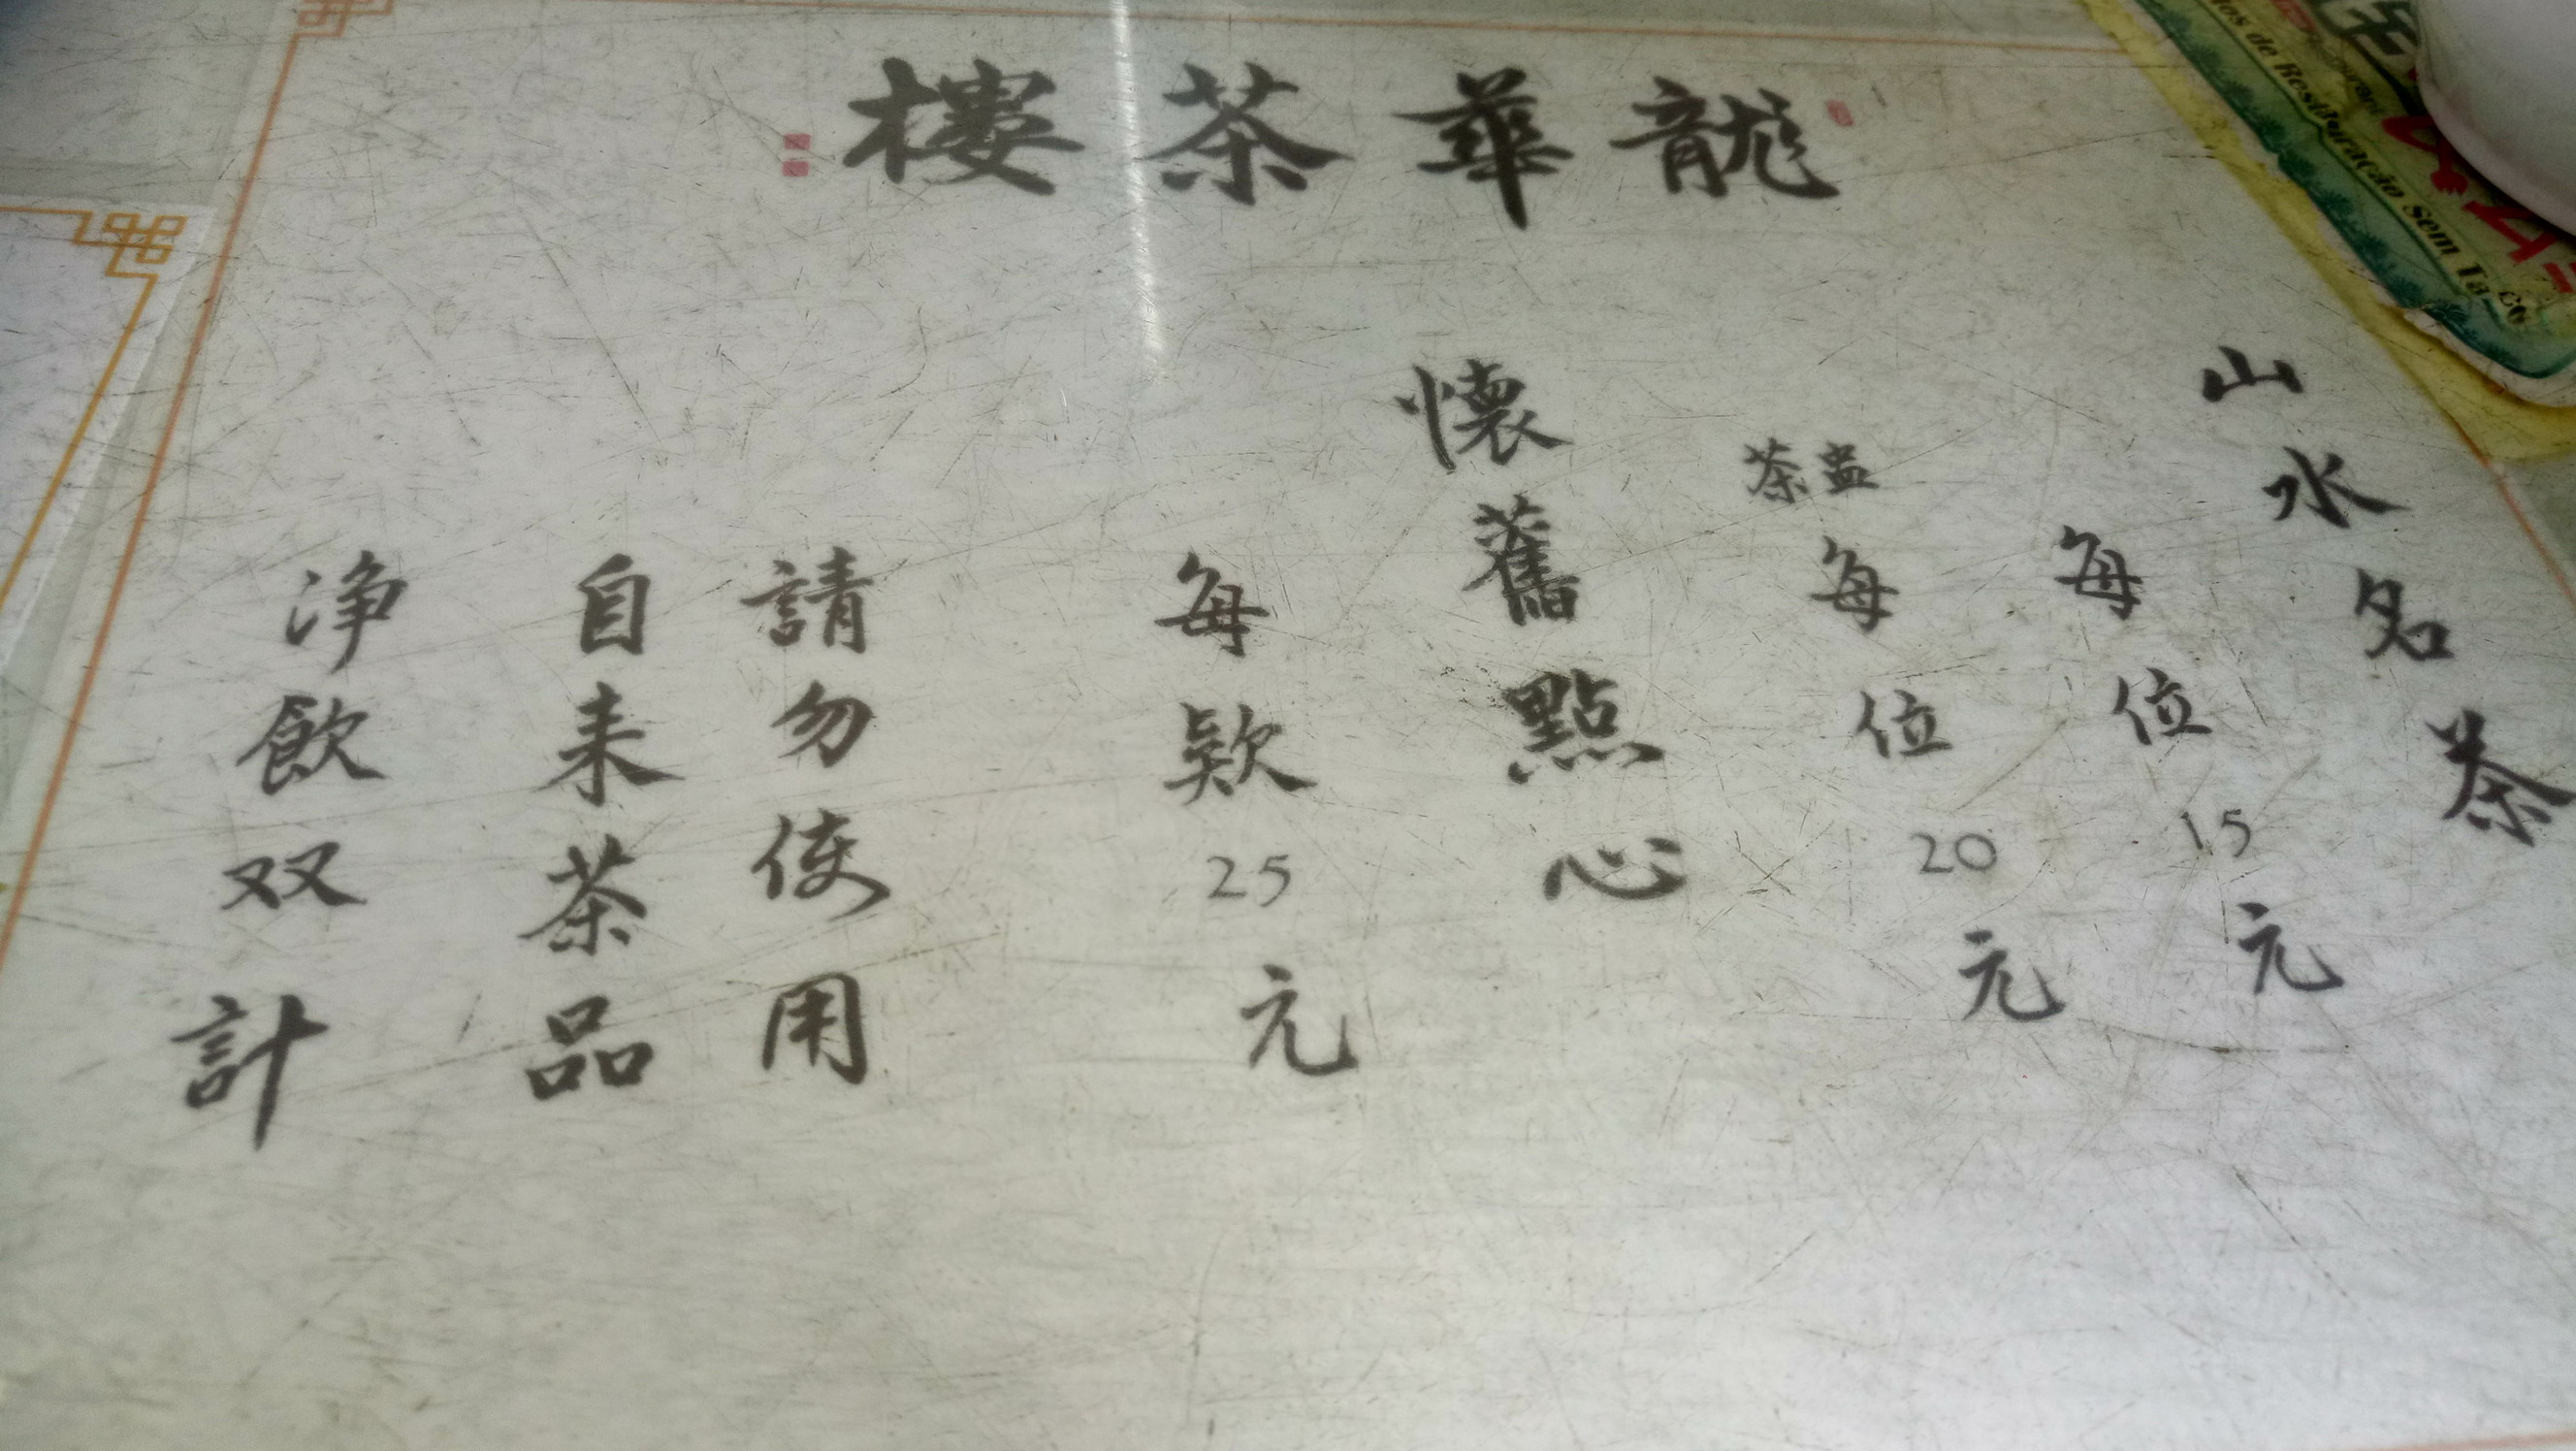 龍華茶樓
山水名茶
每位15元
茶盅
每位20元
懷舊點心
每款25元
請勿使用
自来茶品
净飲双計
de Restauração Sem Ta